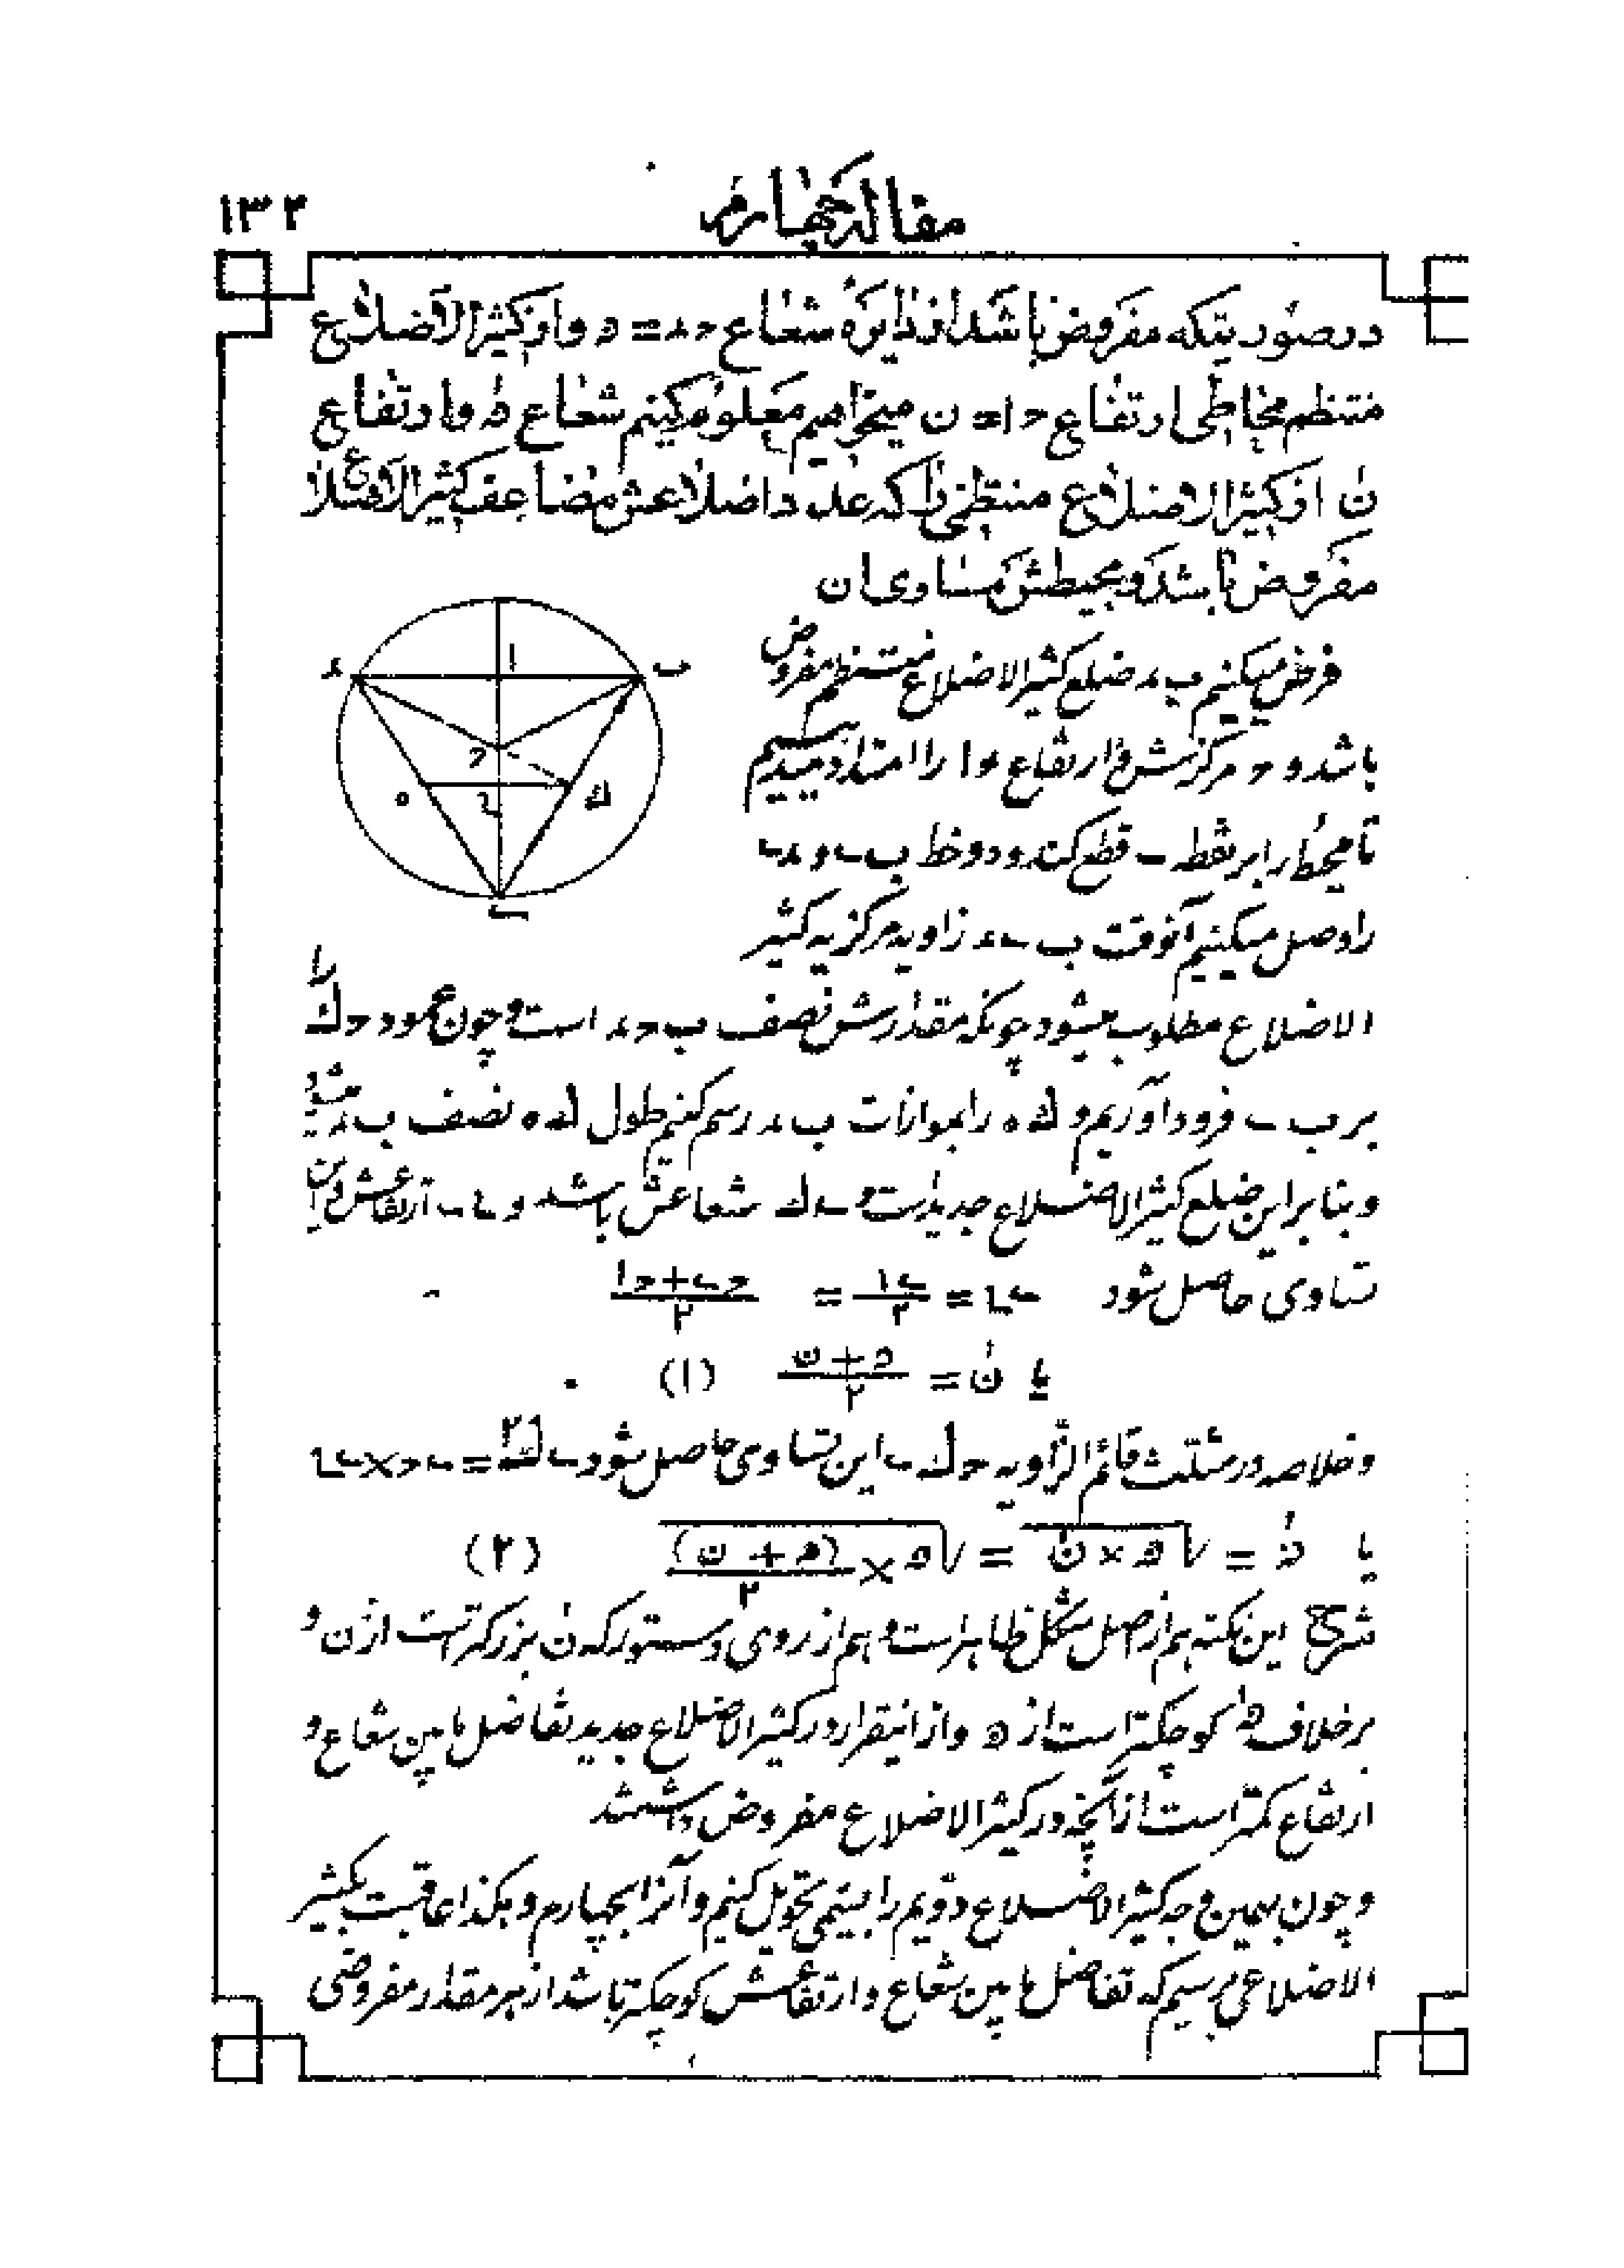 مقاله چهارم
١٣٢
در صورتیکه مفروض باشد از دایره شعاع حد = ه و از کثیر الاضلاع
منتظم محاطی ارتفاع حا = ن میخواهیم معلوم کنیم شعاع هَ و ارتفاع
نَ از کثیر الاضلاع منتظمی را که عدد اضلاعش مضاعف کثیر الاضلاع
مفروض باشد و محیطش مساوی ان
فرض میکنیم ب د ضلع کثیر الاضلاع منتظم مفروض
باشد و ح مرکزش و ارتفاع حا را امتداد میدهیم
تا محیط را بر نقطه ے قطع کند و دو خط ب ے و د ے
را وصل میکنیم آنوقت ب ے د زاویه مرکزیه کثیر
الاضلاع مطلوب میشود چونکه مقدارش نصف ب ح د است و چون عمود ح ك را
بر ب ے فرود آوریم و ك ه را بموازات ب د رسم کنیم طول ك ه نصف ب د میشود
و بنا براین ضلع کثیر الاضلاع جدید است و ے ك شعاعش باشد و ے ط ارتفاعش و این
تساوی حاصل شود ے ط = ے ا / ٢ = ح ے + ح ا / ٢
یا نَ = ه + ن / ٢ (١)
و خلاصه در مثلث قائم الزاویه ح ك ے این تساوی حاصل شود ے ك٢ = ے ح × ے ط
یا هَ = √ه × نَ = √ه × (ه + ن) / ٢ (٢)
شرح این نکته هم از اصل شکل ظاهر است و هم از روی دستور که نَ بزرکتر است از ن و
بر خلاف هَ کوچکتر است از ه و از اینقرار در کثیر الاضلاع جدید تفاضل مابین شعاع و
ارتفاع کمتر است از آنچه در کثیر الاضلاع مفروض داشتند
و چون بهمین وجه کثیر الاضلاع دویم را بسیمی تحویل کنیم و آنرا بچهارم و هکذا عاقبت بکثیر
الاضلاعی برسیم که تفاضل مابین شعاع و ارتفاعش کوچکتر باشد از هر مقدار مفروضی